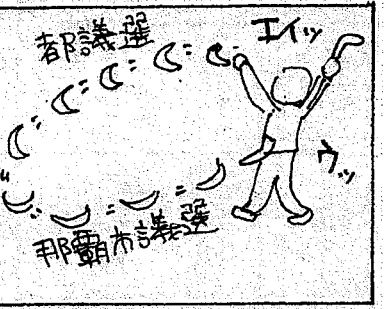 都議選
エイッ
ウッ
那覇市議選